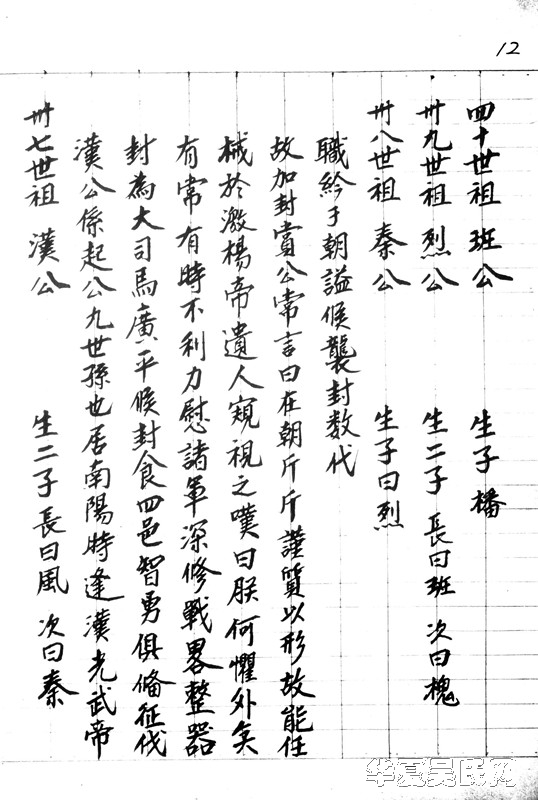 12
卅七世祖 漢公 生二子 長曰風 次曰秦
漢公係起公九世孫也居南陽時逢漢光武帝
封為大司馬廣平候封食四邑智勇俱備征伐
有常有時不利力慰諸軍深修戰畧整器
械於激楊帝遺人窺視之嘆曰朕何懼外矣
故加封賞公常言曰在朝斤斤謹質以形故能任
職於于朝謚候襲封数代
卅八世祖 秦公 生子曰烈
卅九世祖 烈公 生二子 長曰班 次曰槐
四十世祖 班公 生子橋
华夏吴氏网